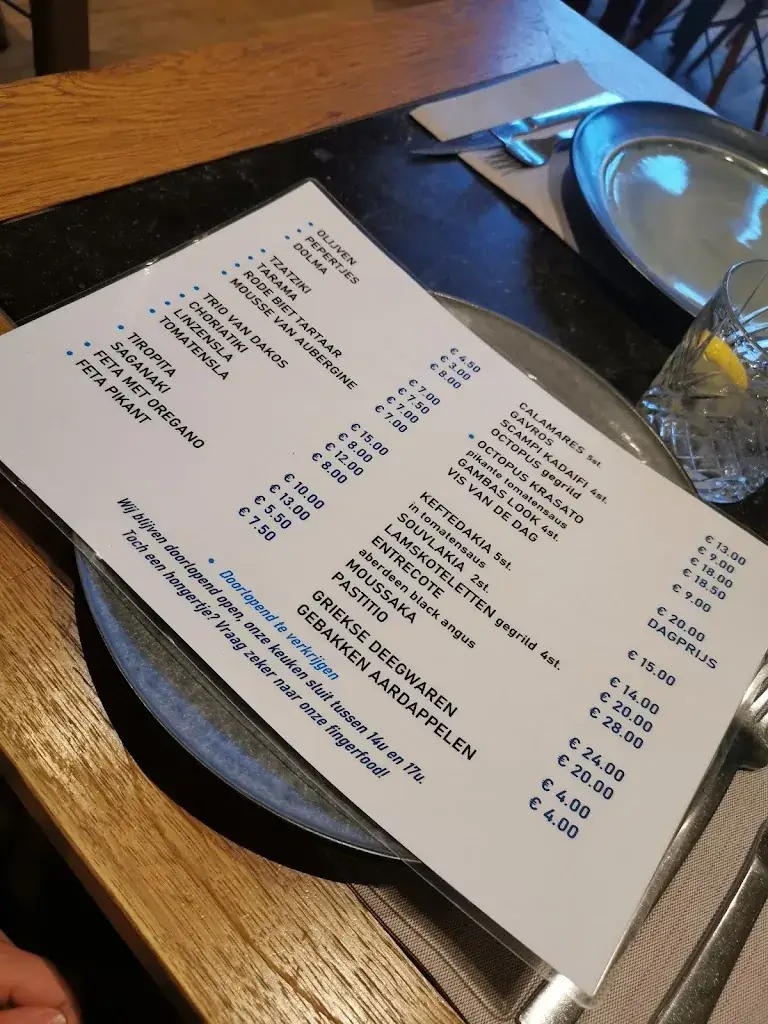 • OLIJVEN € 4.50
• PEPERTJES € 3.00
• DOLMA € 8.00
• TZATZIKI € 7.00
• TARAMA € 7.50
• RODE BIETTARTAAR € 7.00
• MOUSSE VAN AUBERGINE € 7.00
• TRIO VAN DAKOS € 15.00
• CHORIATIKI € 8.00
• LINZENSLA € 12.00
• TOMATENSLA € 8.00
• TIROPITA € 10.00
SAGANAKI € 13.00
• FETA MET OREGANO € 5.50
• FETA PIKANT € 7.50
• Doorlopend te verkrijgen
Wij blijven doorlopend open, onze keuken sluit tussen 14u en 17u.
Toch een hongertje? Vraag zeker naar onze fingerfood!
CALAMARES 5st. € 13.00
GAVROS € 9.00
SCAMPI KADAIFI 4st. € 18.00
OCTOPUS gegrild € 18.50
• OCTOPUS KRASATO € 9.00
pikante tomatensaus
GAMBAS LOOK 4st. € 20.00
VIS VAN DE DAG DAGPRIJS
KEFTEDAKIA 5st. € 15.00
in tomatensaus
SOUVLAKIA 2st. € 14.00
LAMSKOTELETTEN gegrild 4st. € 20.00
ENTRECOTE € 28.00
aberdeen black angus
MOUSSAKA € 24.00
PASTITIO € 20.00
GRIEKSE DEEGWAREN € 4.00
GEBAKKEN AARDAPPELEN € 4.00